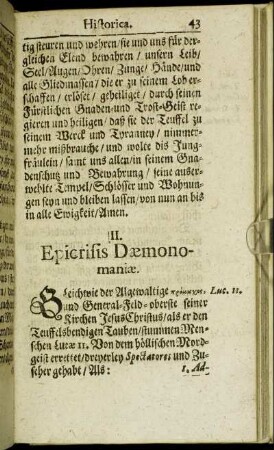 Historica. 43
tig steuren und wehren/sie und uns für der-
gleichen Elend bewahren / unsern Leib/
Seel/Augen/Ohren/Zunge/Hände/und
alle Gliedmassen/die er zu seinem Lob er-
schaffen/ erlöset/ geheiliget / durch seinen
Fürstlichen Gnaden-und Trost-Geist re-
gieren und heiligen/ daß sie der Teuffel zu
seinem Werck und Tyranney/ nimmer-
mehr mißbrauche/ und wolte dis Jung-
fräulein/ samt uns allen/in seinem Gna-
denschutz und Bewahrung / seine auser-
wehlte Tempel/Schlösser und Wohnun-
gen seyn und bleiben lassen/von nun an bis
in alle Ewigkeit/Amen.
III.
Epicrisis Dæmono-
maniæ.
GLeichwie der Algewaltige Luc. 11.
und General-Feld-oberste seiner
Kirchen Jesus Christus/als er den
Teuffelsbendigen Tauben/stummen Men-
schen Lucæ 11. Von dem höllischen Mord-
geist errettet/dreyerley Spectatores und Zu-
seher gehabt / Als :
1. Ad-